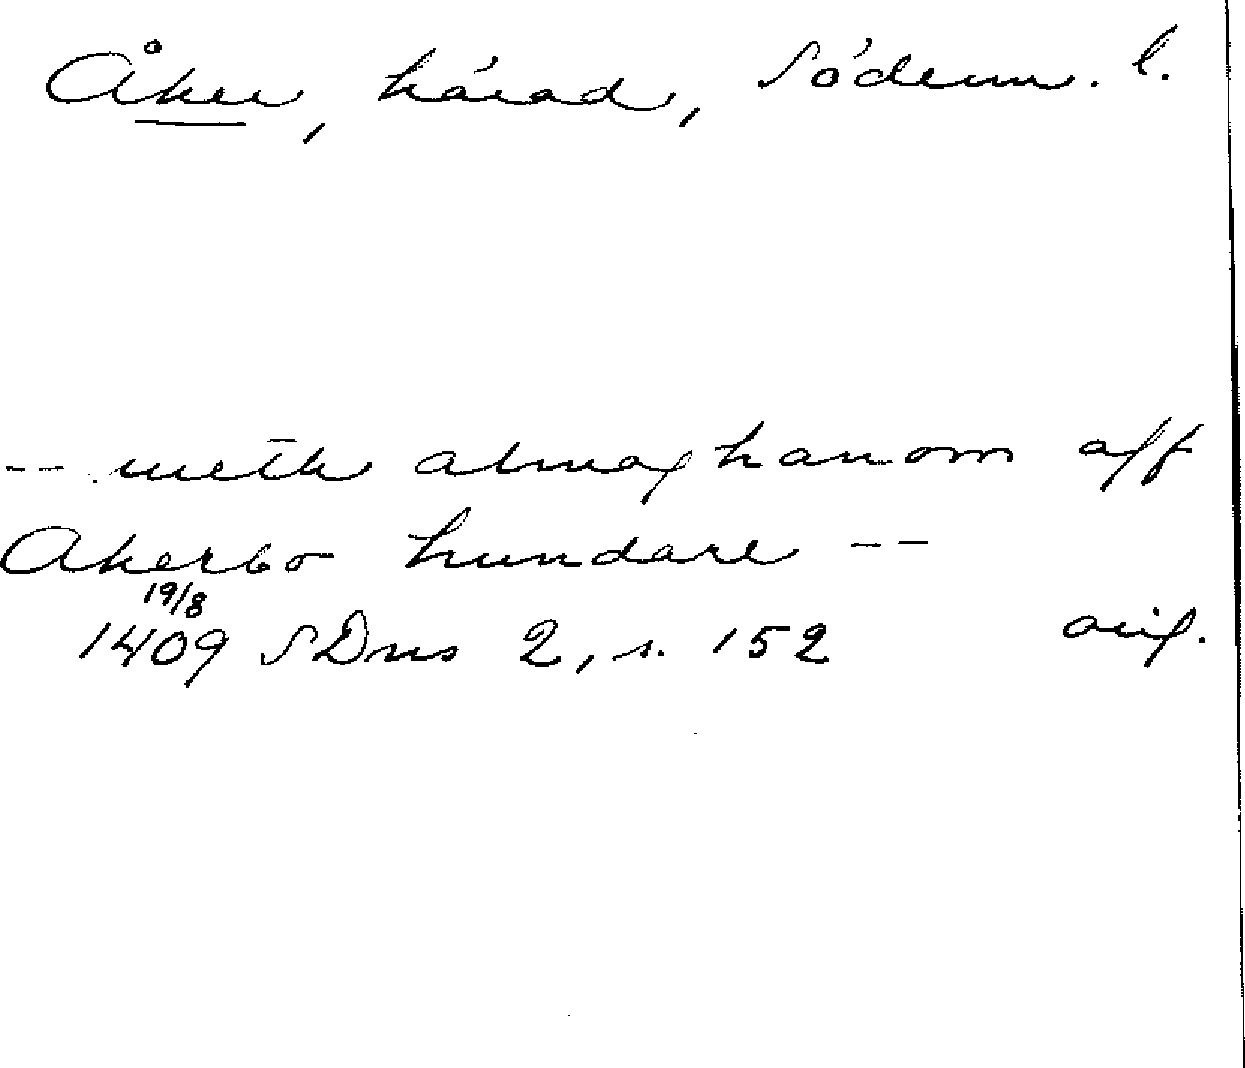 Åker, härad, Söderm. l.
-- meth almoghanom aff
Akerbo hundare --
19/8
1409 SDns 2, s. 152 orig.